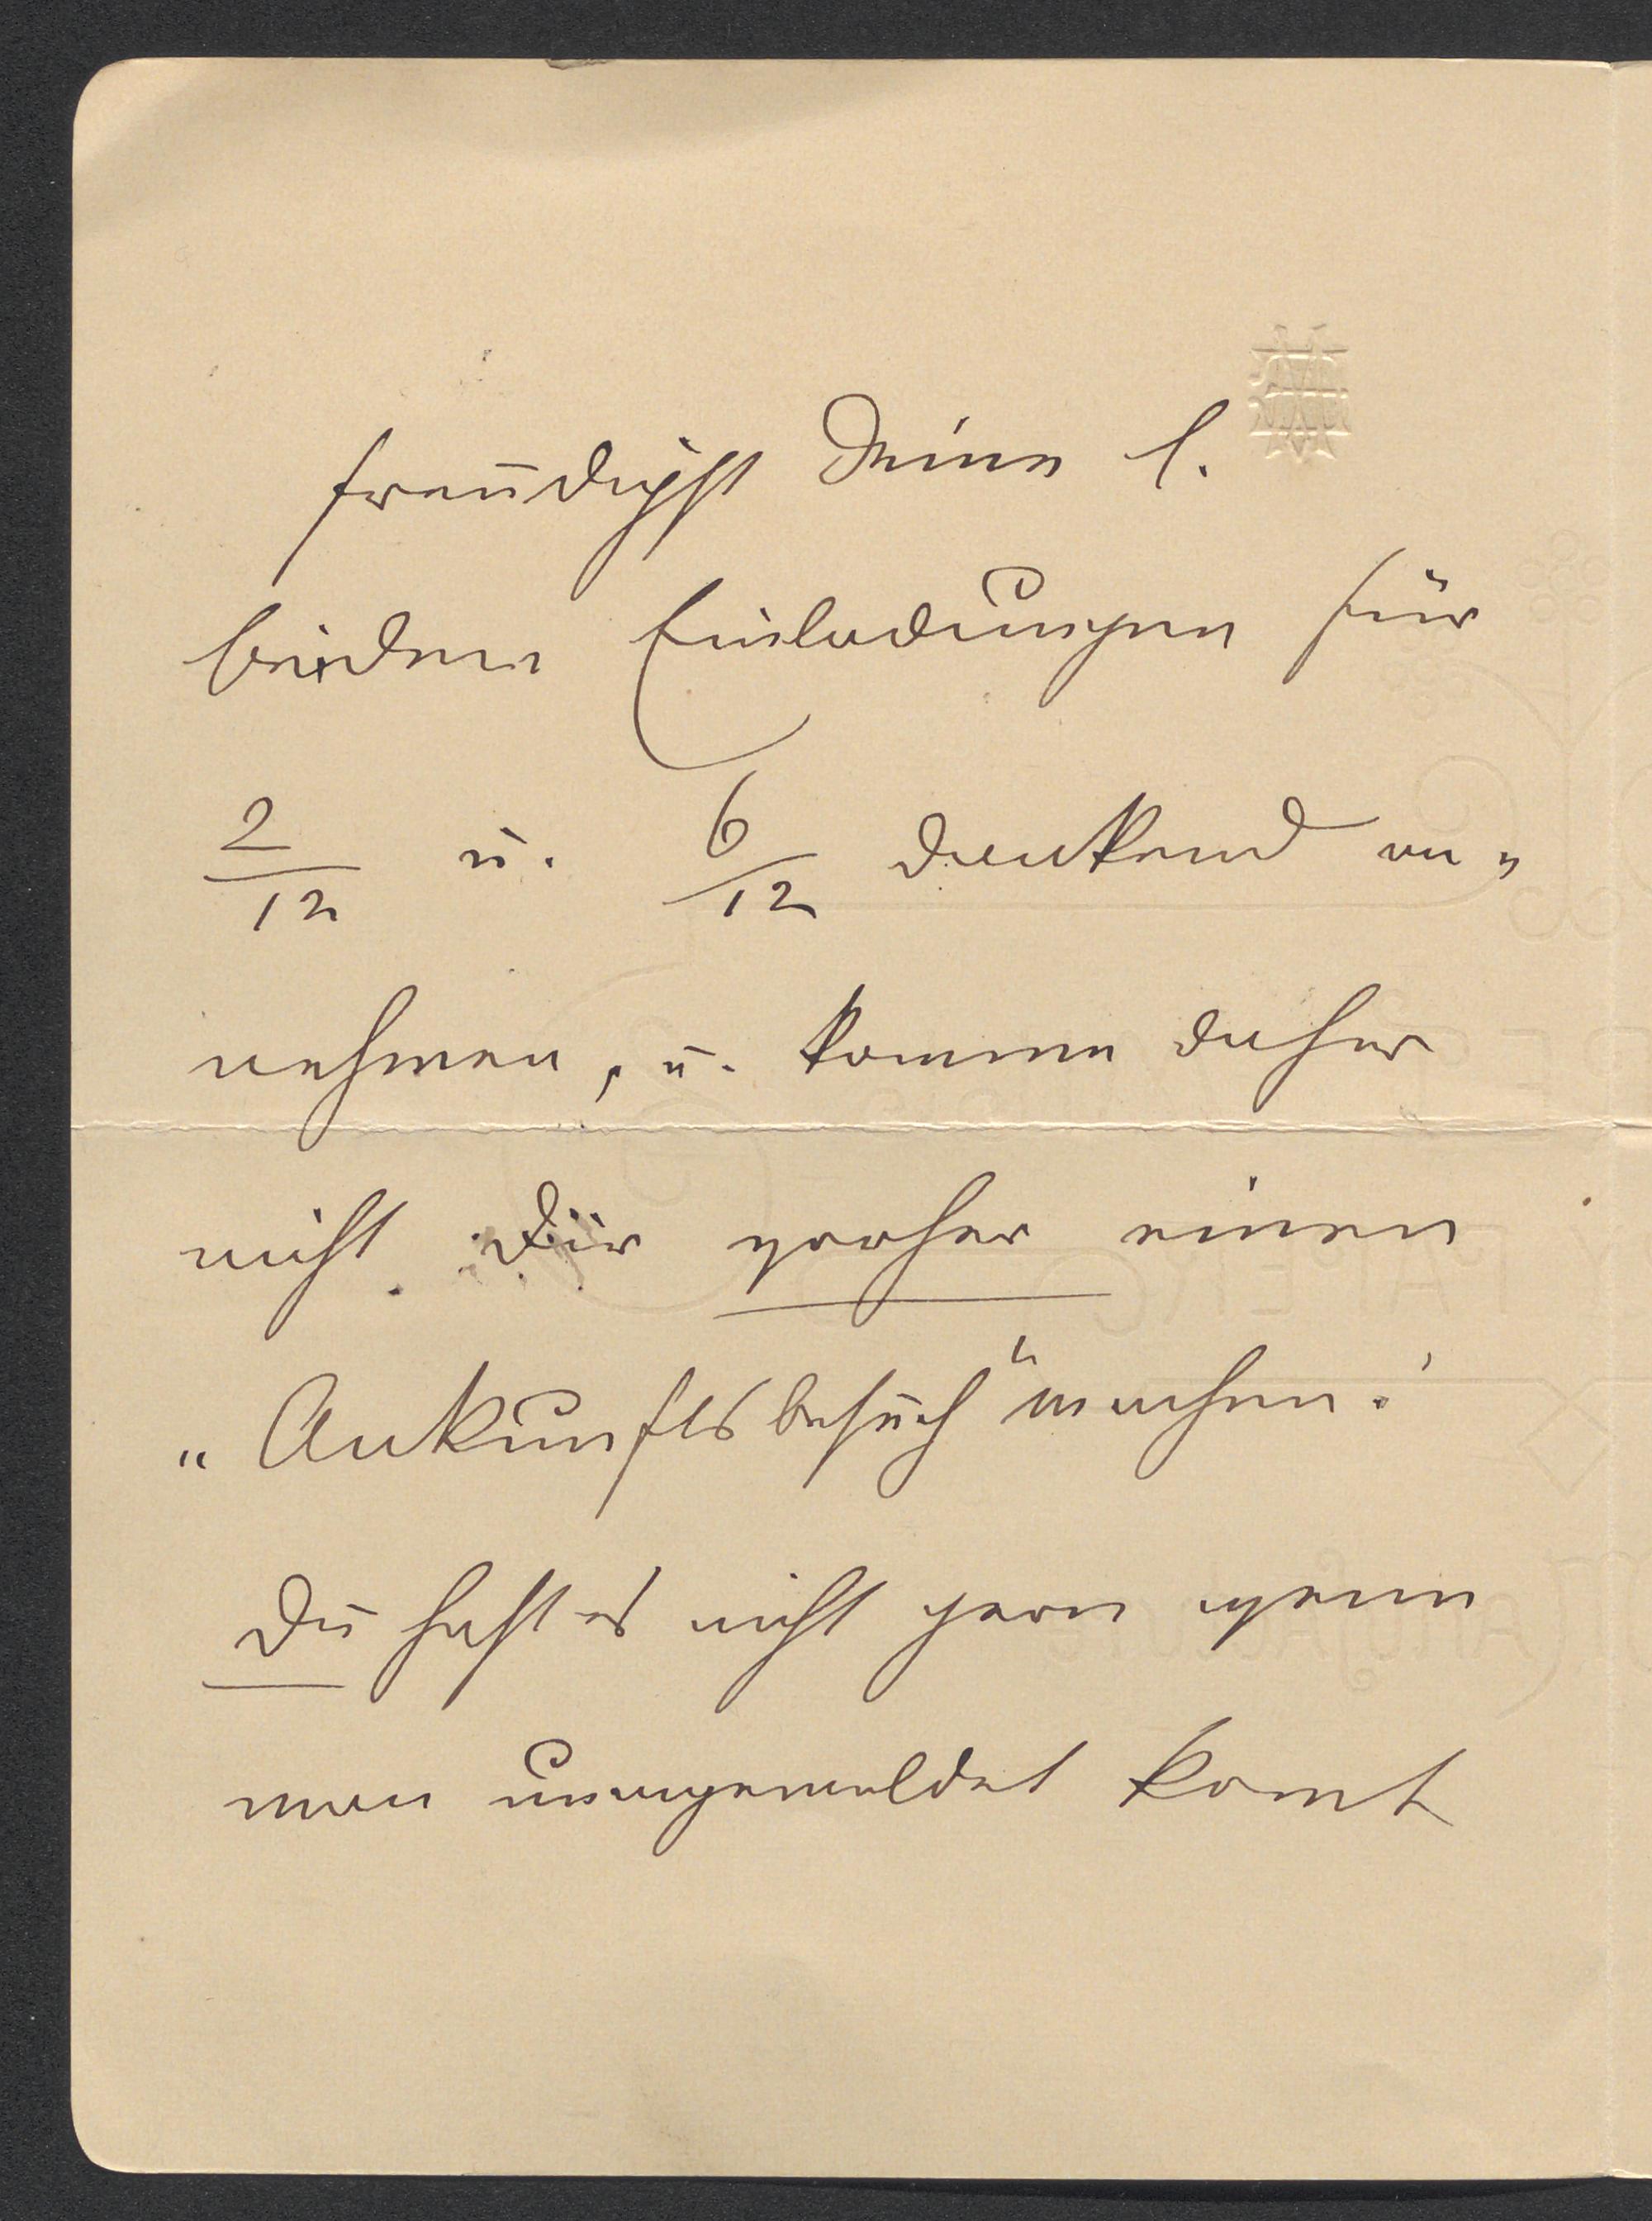 freudigst Deine l.
beiden Einladungen für
2/12 u. 6/12 dankend an„
nehmen, u. komme daher
nicht Dir vorher einen
„Ankunftsbesuch“ machen!
Du hast es nicht gern wenn
man unangemeldet komt